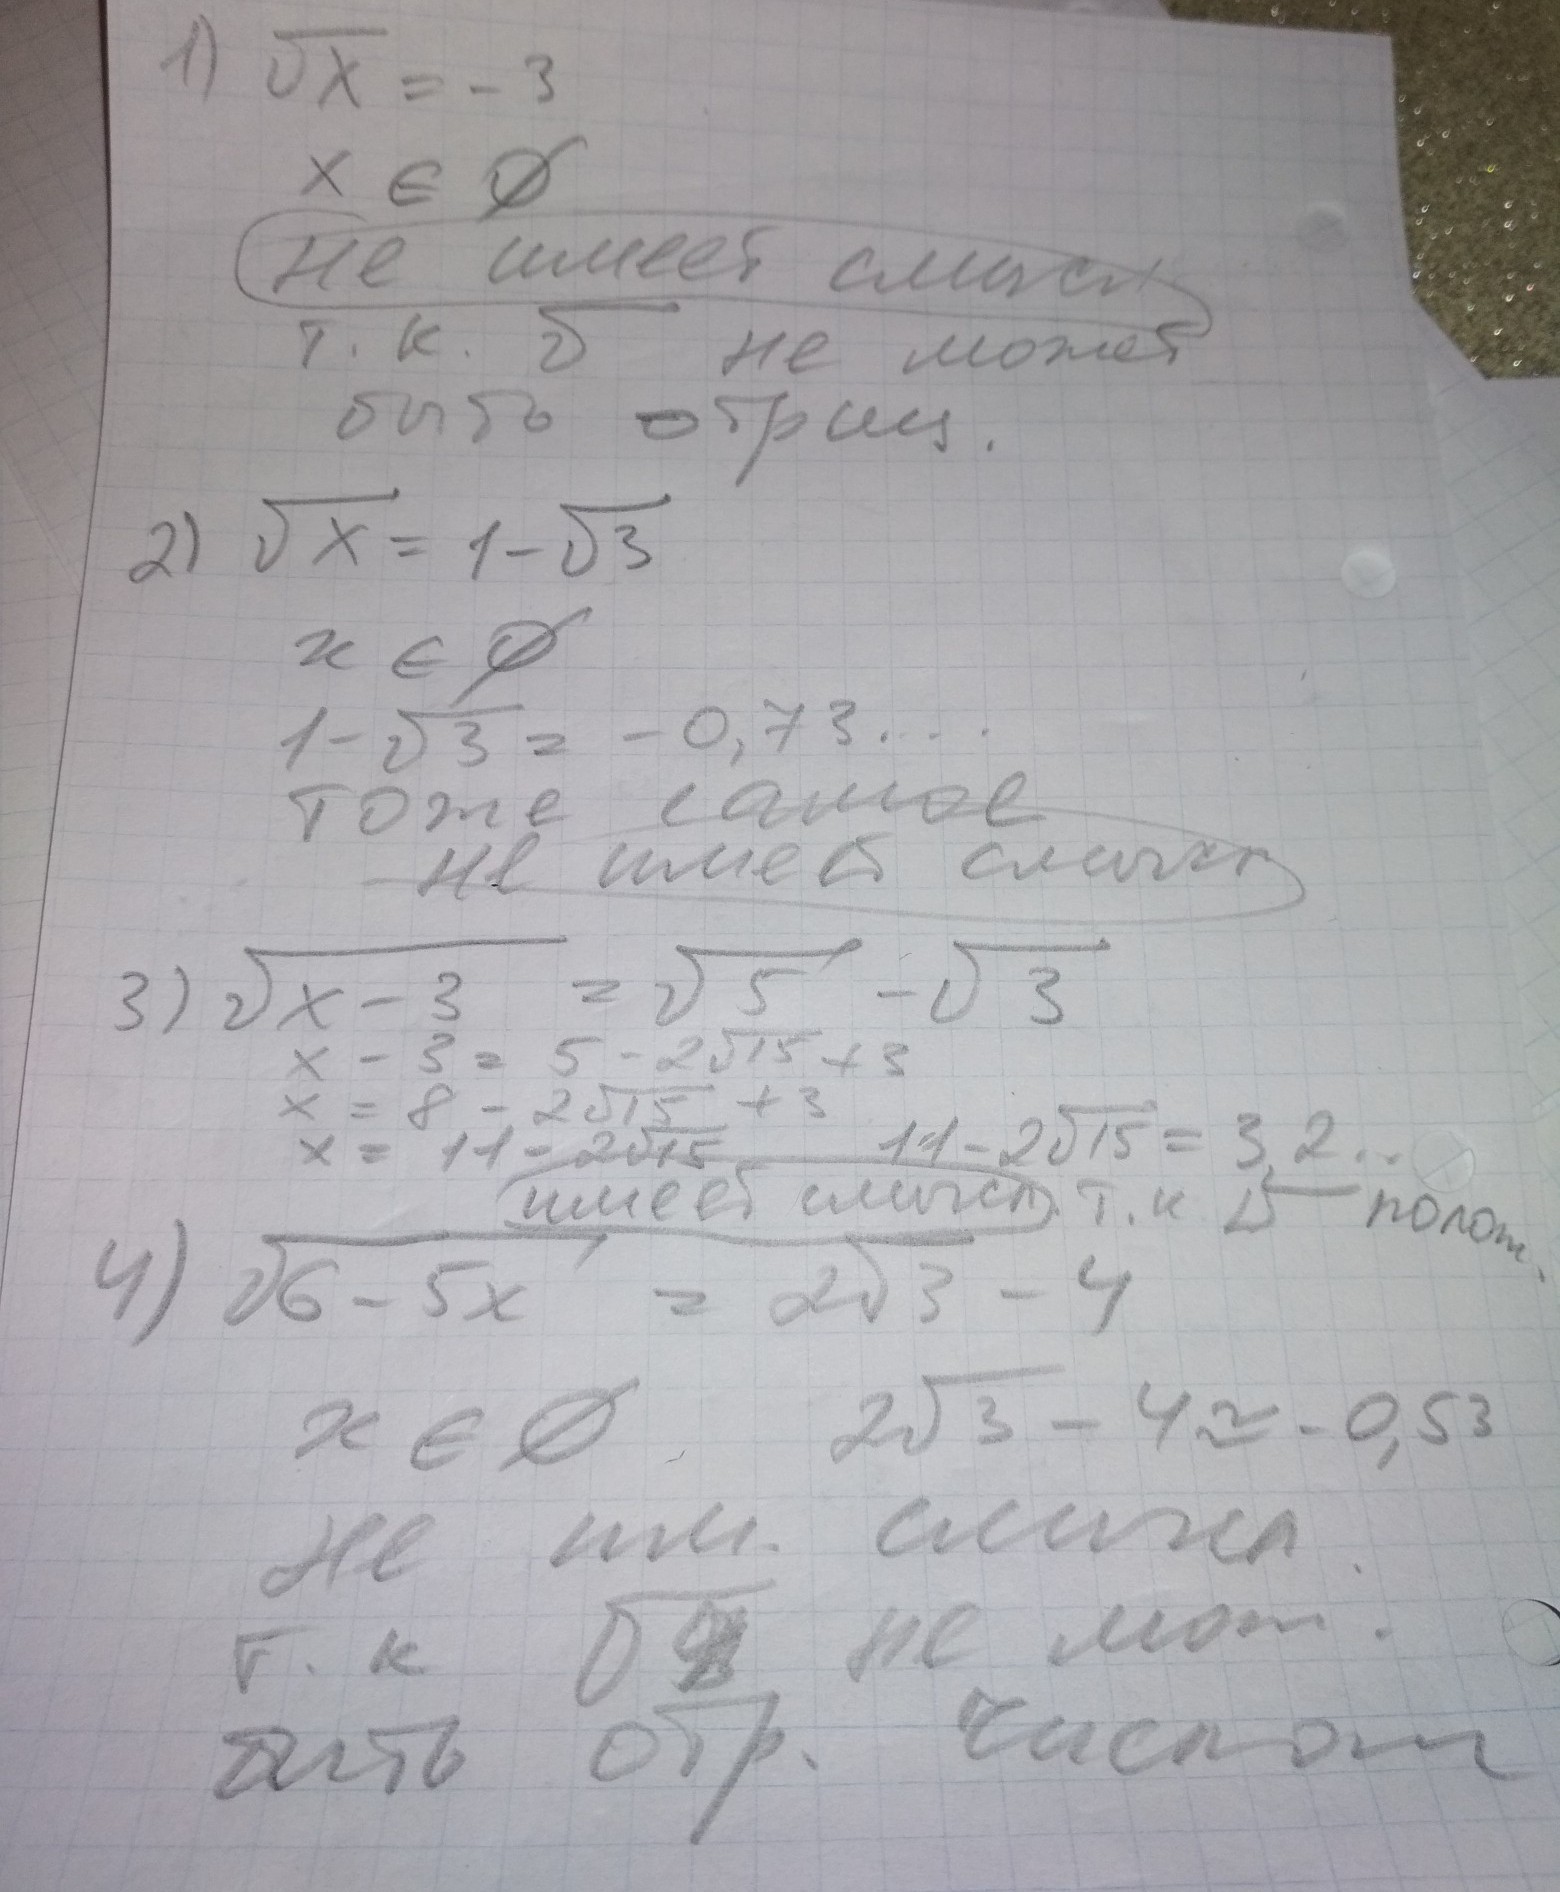 1) √x = -3
x ∈ ∅
не имеет смысл
т.к. √ не может
быть отриц.
2) √x = 1-√3
x ∈ ∅
1-√3 = -0,73....
тоже самое
не имеет смысл
3) √x-3 = √5 - √3
x - 3 = 5 - 2√15 + 3
x = 8 - 2√15 + 3
x = 11 - 2√15 11-2√15 = 3,2..
имеет смысл т.к √ полож.
4) √6-5x = 2√3 - 4
x ∈ ∅ 2√3 - 4 ≈ -0,53
не им. смысл.
т.к √ не мож.
быть отр. числом